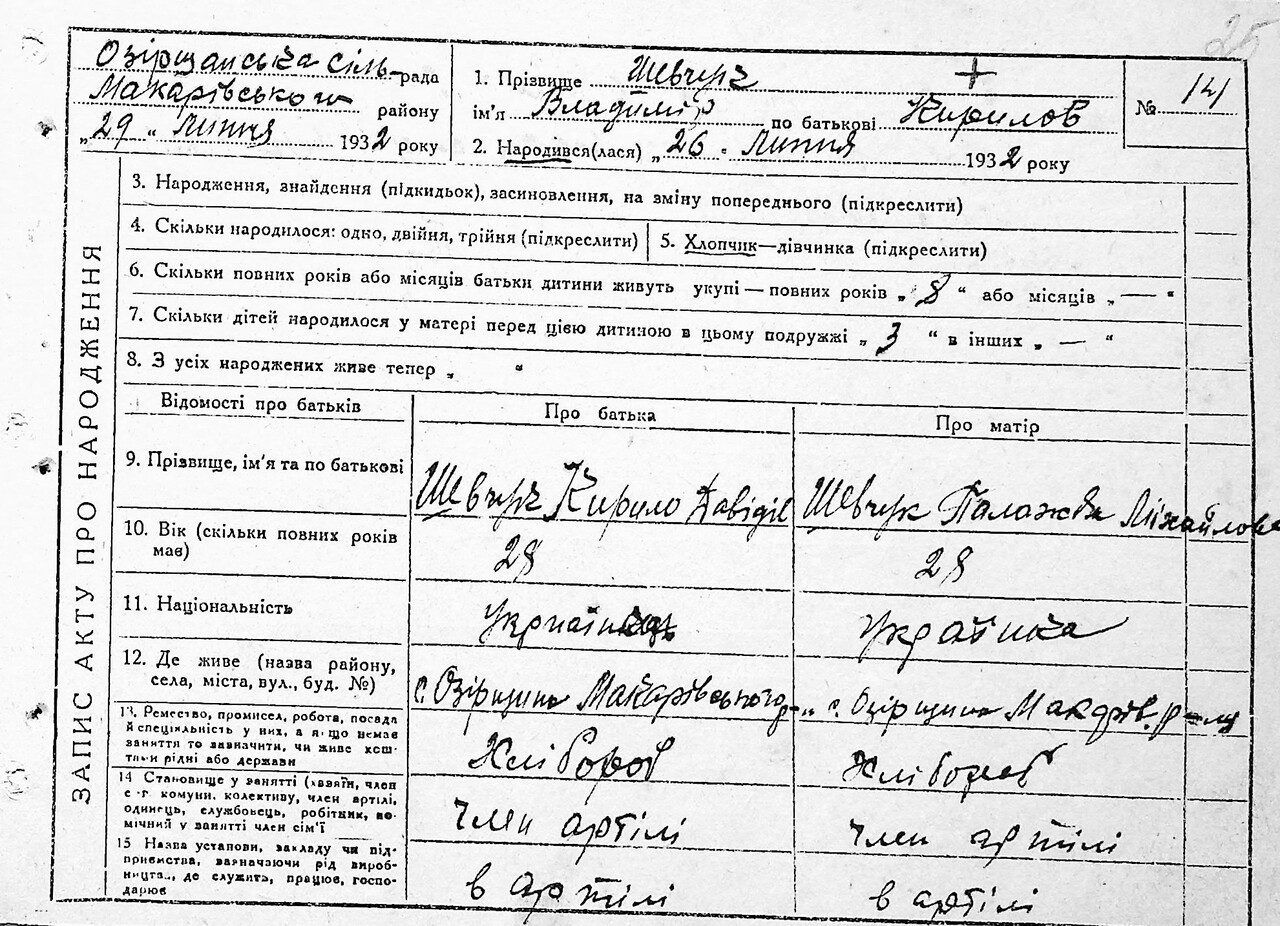 25
Озірщанська сіль-рада
Макарівського району
„29" Липня 1932 року
1. Прізвище Шевчук +
ім'я Владимір по батькові Кирилов
2. Народився(лася) „26" Липня 1932 року
№ 141
ЗАПИС АКТУ ПРО НАРОДЖЕННЯ
3. Народження, знайдення (підкидьок), засиновлення, на зміну попереднього (підкреслити)
4. Скільки народилося: одно, двійня, трійня (підкреслити)
5. Хлопчик—дівчинка (підкреслити)
6. Скільки повних років або місяців батьки дитини живуть укупі—повних років „8" або місяців „—"
7. Скільки дітей народилося у матері перед цією дитиною в цьому подружжі „3" в інших „—"
8. З усіх народжених живе тепер „ "
Відомості про батьків
Про батька
Про матір
9. Прізвище, ім'я та по батькові
Шевчук Кирило Давідів
Шевчук Палажка Міхайлова
10. Вік (скільки повних років
має)
28
28
11. Національність
Українець
Українка
12. Де живе (назва району,
села, міста, вул., буд. №)
с. Озірщина Макарівського р-
с. Озірщина Макарів. р-ну
13. Ремество, промисел, робота, посада
й спеціяльність у них, а якщо немає
заняття то зазначити, чи живе кош-
тами рідні або держави
Хлібороб
Хлібороб
14 Становище у занятті (хазяїн, член
с.-г. комуни, колективу, член артілі,
одинець, службовець, робітник, по-
мічний у занятті член сім'ї
член артілі
член артілі
15 Назва установи, закладу чи під-
приємства, зазначаючи рід вироб-
ництва, де служить, працює, госпо-
дарює
в артілі
в артілі